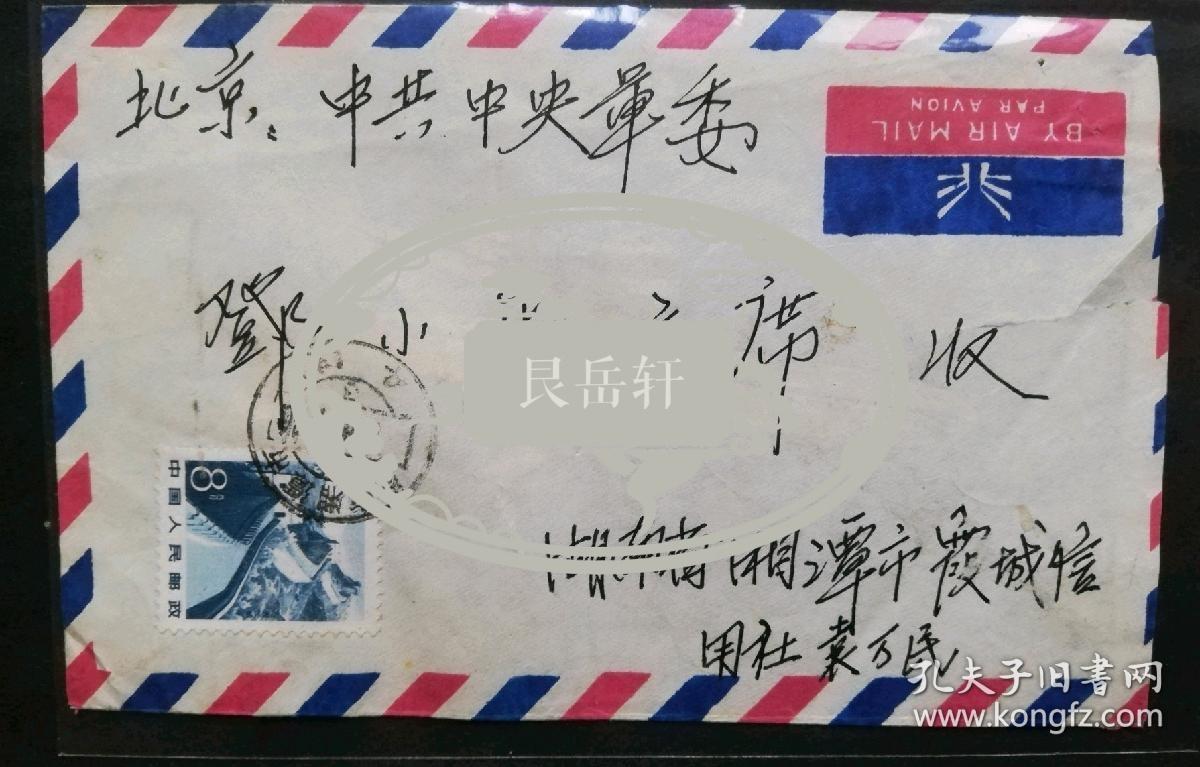 北京: 中共中央军委
BY AIR MAIL
PAR AVION
邓小 席 收
艮岳轩
8分
中国人民邮政
湖南湘潭市霞城信
用社袁万民
孔夫子旧书网
www.kongfz.com